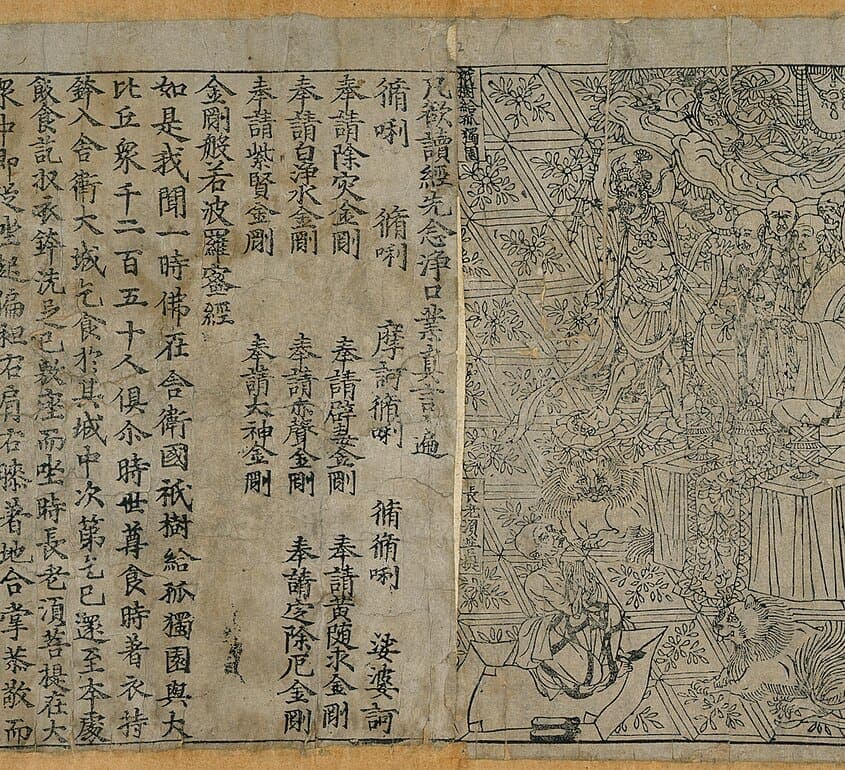 祇樹給孤獨園
長老須菩提
凡欲讀經先念淨口業真言遍
脩唎 脩唎 摩訶脩唎 脩脩唎 娑婆訶
奉請除灾金剛 奉請辟毒金剛 奉請黃随求金剛
奉請白淨水金剛 奉請赤聲金剛 奉請定除厄金剛
奉請紫賢金剛 奉請大神金剛
金剛般若波羅蜜經
如是我聞一時佛在舍衛國祇樹給孤獨園與大
比丘眾千二百五十人俱尒時世尊食時著衣持
鉢入舍衛大城乞食於其城中次第乞已還至本處
飯食訖收衣鉢洗足已敷座而坐時長老須菩提在大
眾中即從坐起偏袒右肩右膝著地合掌恭敬而